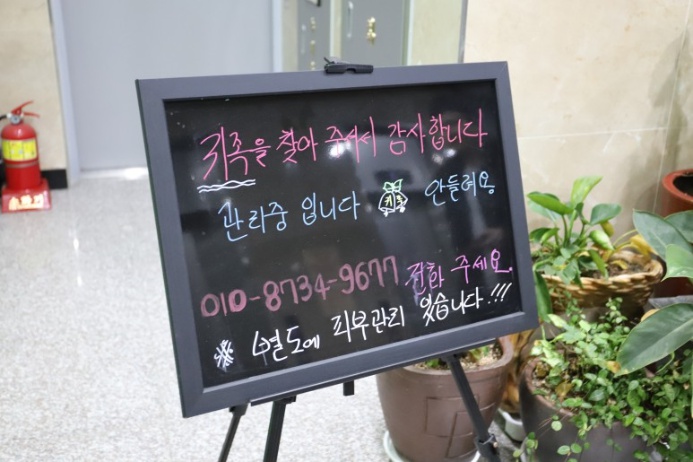 귀족을 찾아 주셔서 감사합니다
관리중 입니다 안들려용
010-8734-9677 전화 주세요.
※ 별도에 피부관리 있습니다!!!